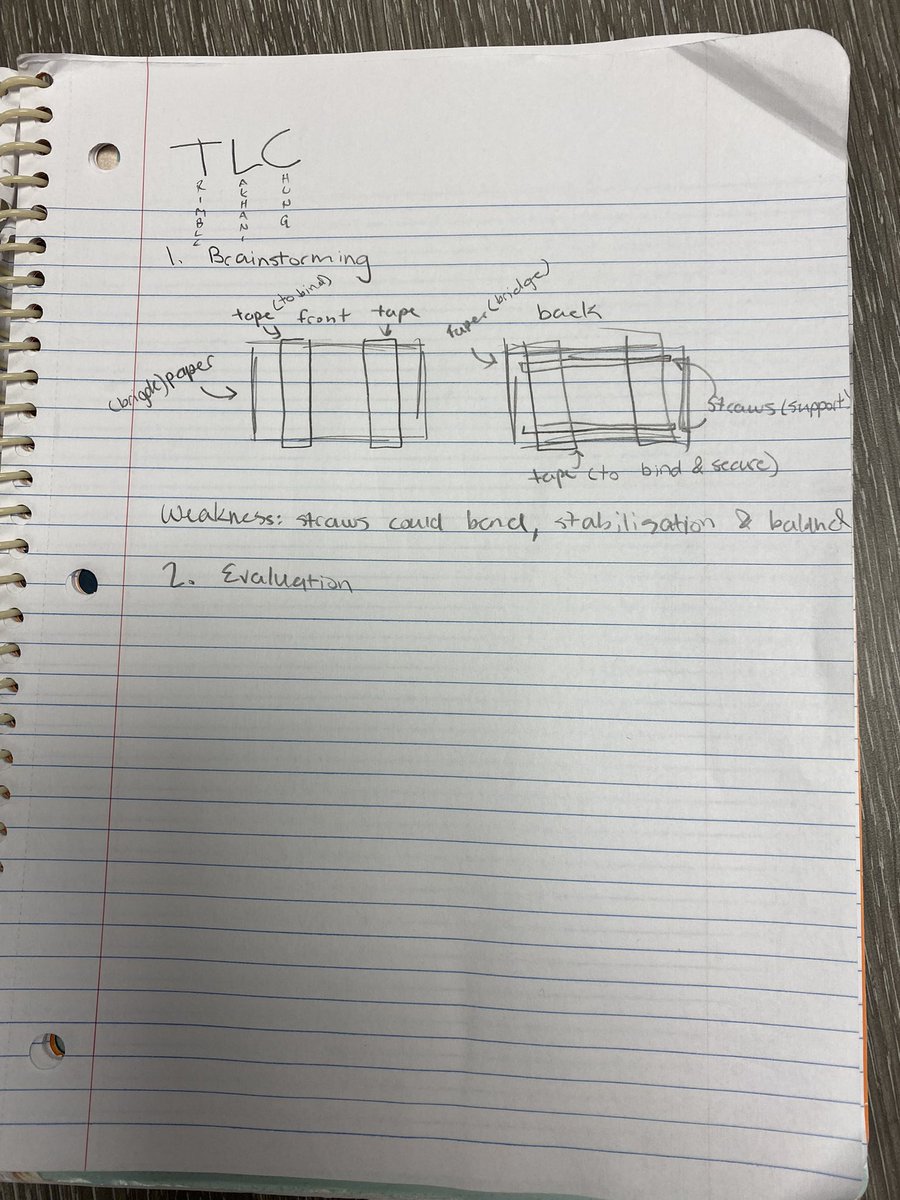 TLC
RIMBLE
AKHANI
HUNG
1. Brainstorming
tape (to bind) front tape
(brigde) paper
paper (bridge) back
straws (support)
tape (to bind & secure)
Weakness: straws could bend, stabilisation & balance
2. Evaluation